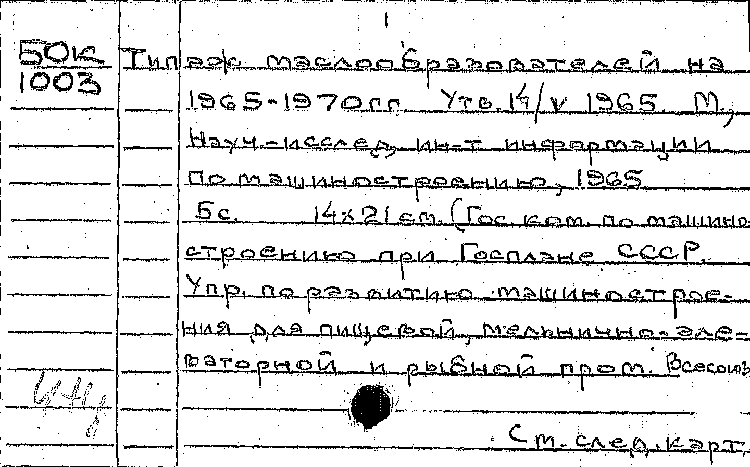 1
50к
1003
Типаж маслообразователей на
1965-1970 гг. Утв. 14/V 1965. М.,
Науч.-исслед. ин-т информации
по машиностроению, 1965
5с. 14х21 см. (Гос. ком. по машино
строению при Госплане СССР.
Упр. по развитию машинострое-
ния для пищевой, мельнично-эле-
ваторной и рыбной пром. Всесоюз
См. след. карт.